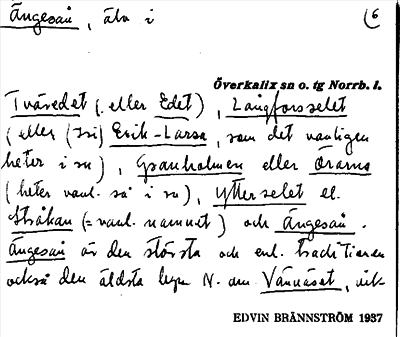 Ängesån, älv i 6
Överkalix sn o. tg Norrb. l.
Tväredet (. eller Edet), Långforsselet
(eller (isi) Erik-Larsa, som det vanligen
heter i sn), Granholmen eller Örarna
(heter vanl. så i sn), ytterselet el.
Stråkan (= vanl. namnet) och Ängesån.
Ängesån är den största och enl. traditionen
också den äldsta byn N. om Vännäset, vik-
EDVIN BRÄNNSTRÖM 1937